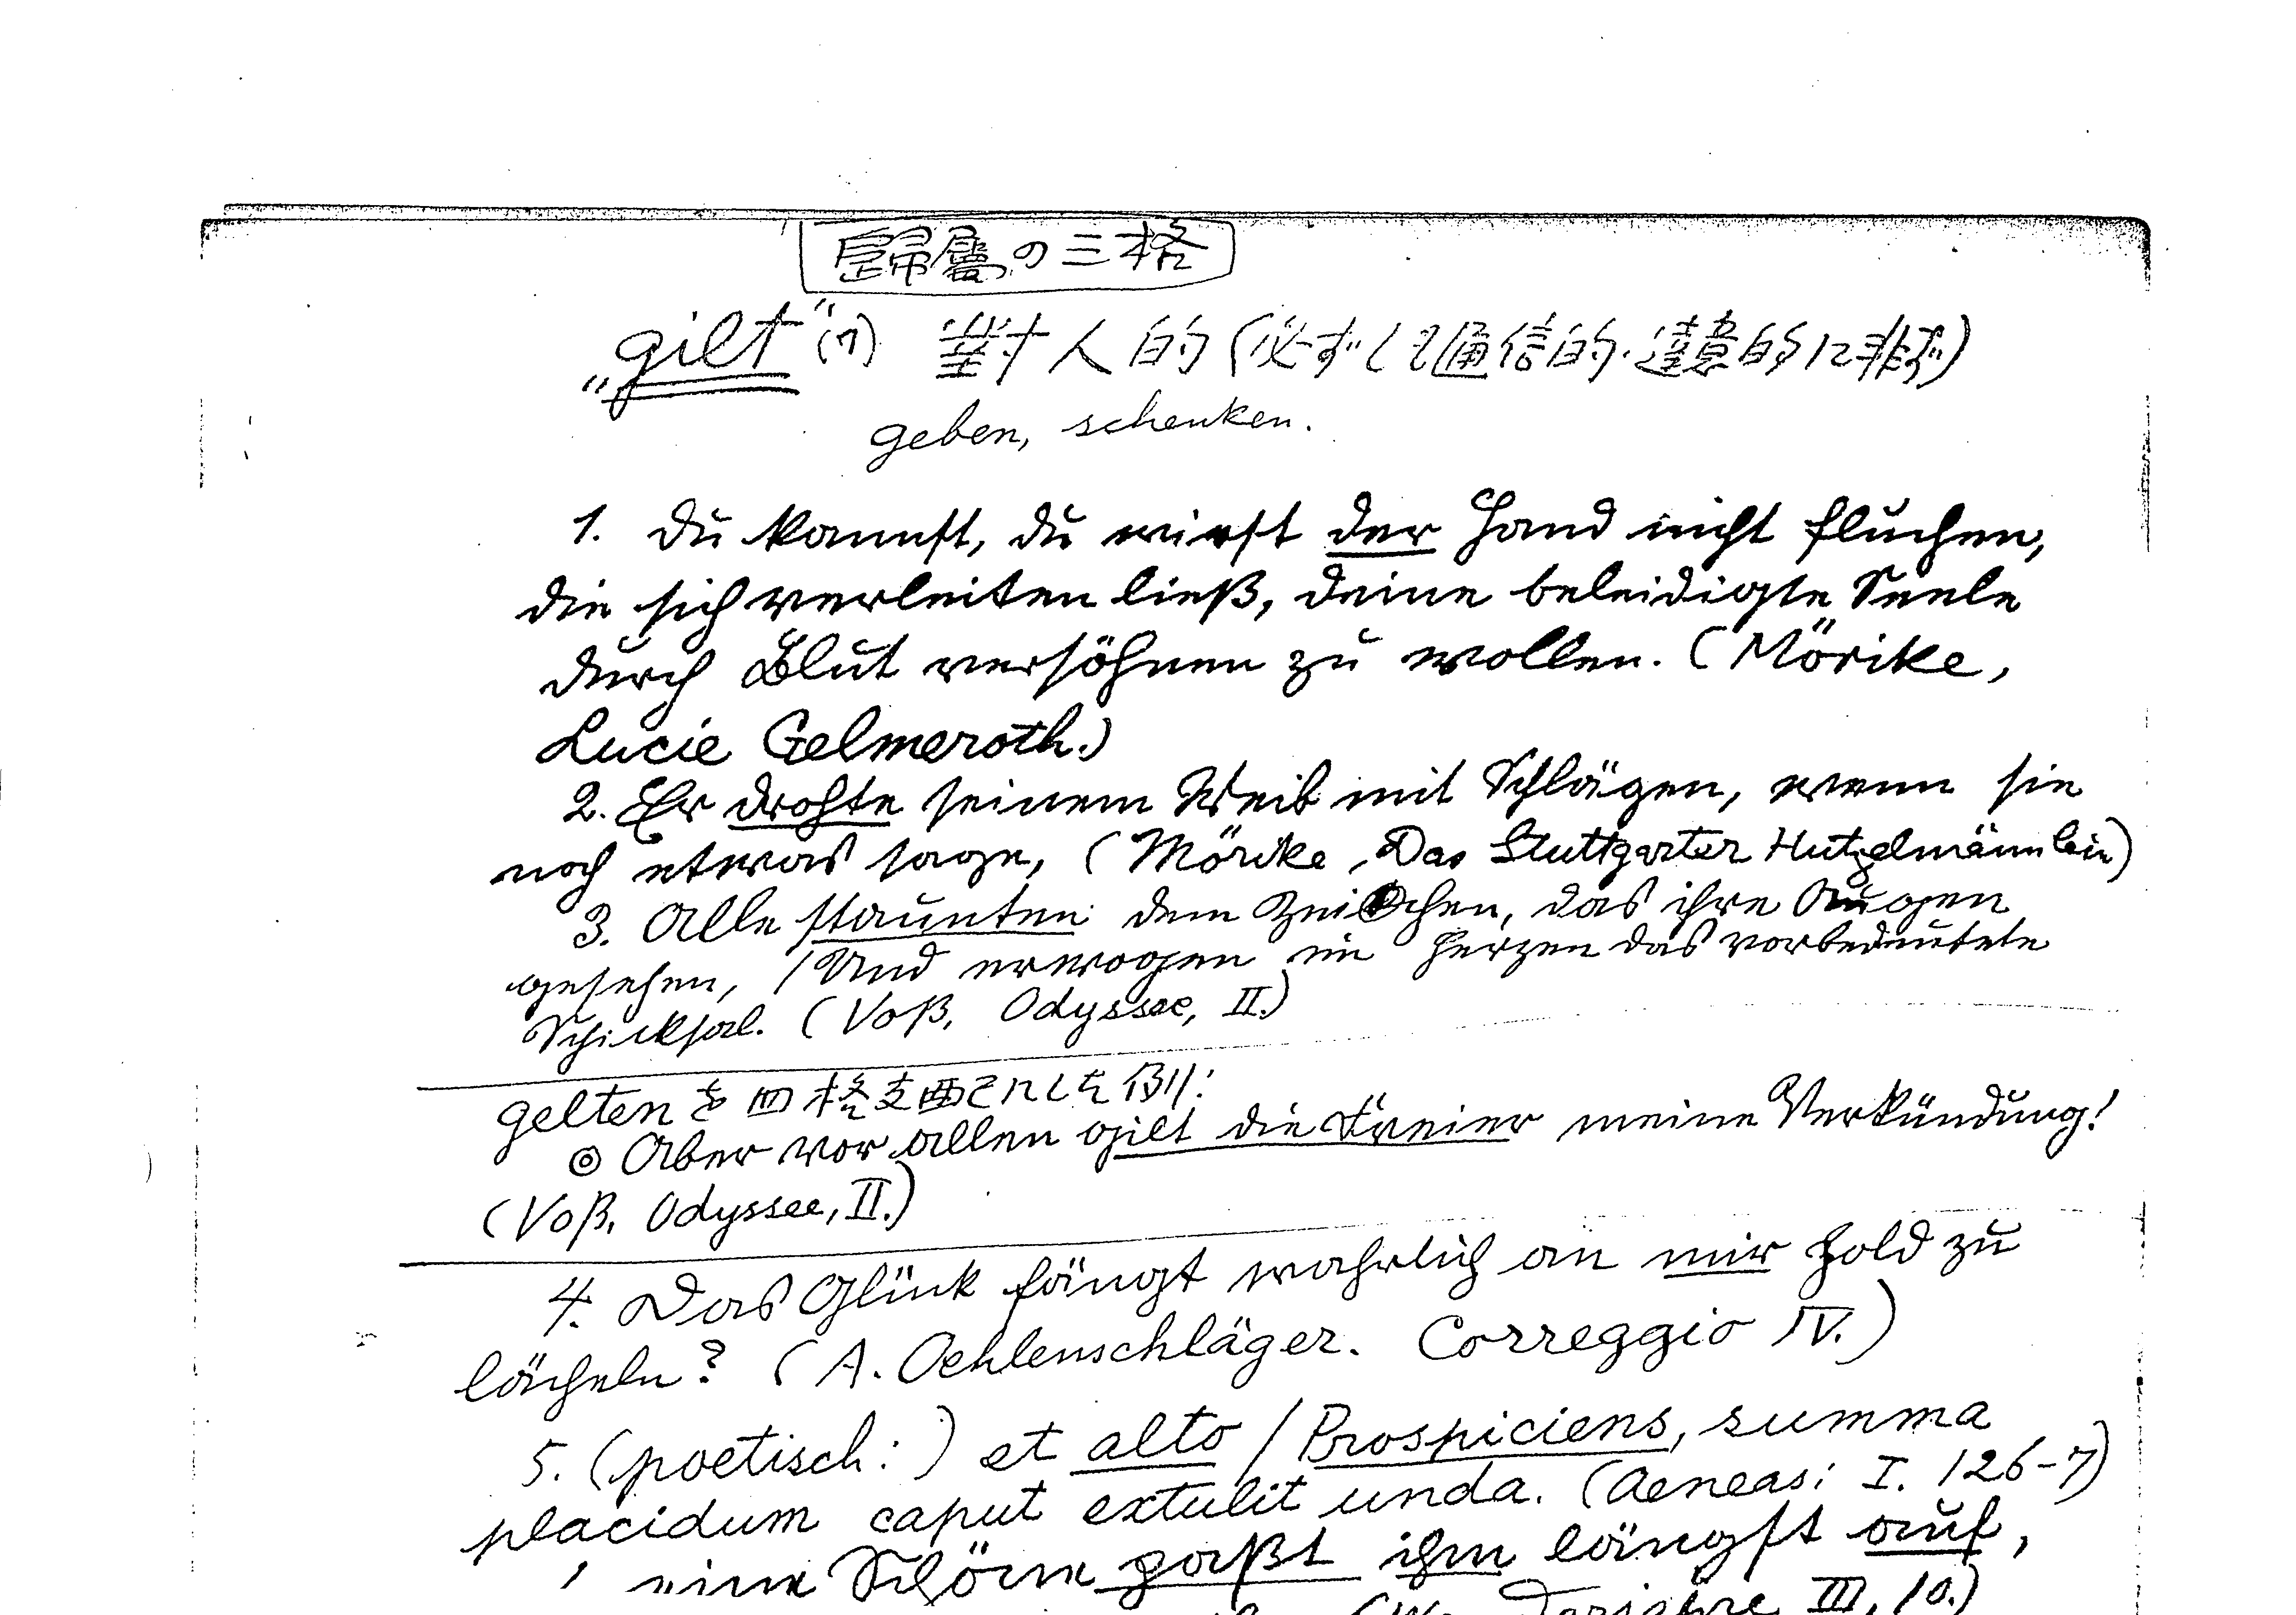 歸屬の三格
„gilt“(1) 對人的(必ずしも通信的・達意的に非ず)
geben, schenken.
1. Du kannst, du wirst der Hand nicht fluchen,
die sich verleiten ließ, deine beleidigte Seele
durch Blut versöhnen zu wollen. (Mörike,
Lucie Gelmeroth.)
2. Er drohte seinem Weib mit Schlägen, wenn sie
noch etwas sage, (Mörike, Das Stuttgarter Hutzelmännlein)
3. Alle staunten dem Zeichen, das ihre Augen
gesehen, / Und erwogen im Herzen das vorbedeutete
Schicksal. (Voß, Odyssee, II.)
gelten を四格支配にした例:
◎ Aber vor allen gilt die Freier meine Verkündung!
(Voß, Odyssee, II.)
4. Das Glück fängt wahrlich an mir hold zu
lächeln? (A. Oehlenschläger. Correggio IV.)
5. (poetisch:) et alto / Prospiciens, summa
placidum caput extulit unda. (Aeneas: I. 126-7)
eine Schöne paßt ihm längst auf,
III, 10.)